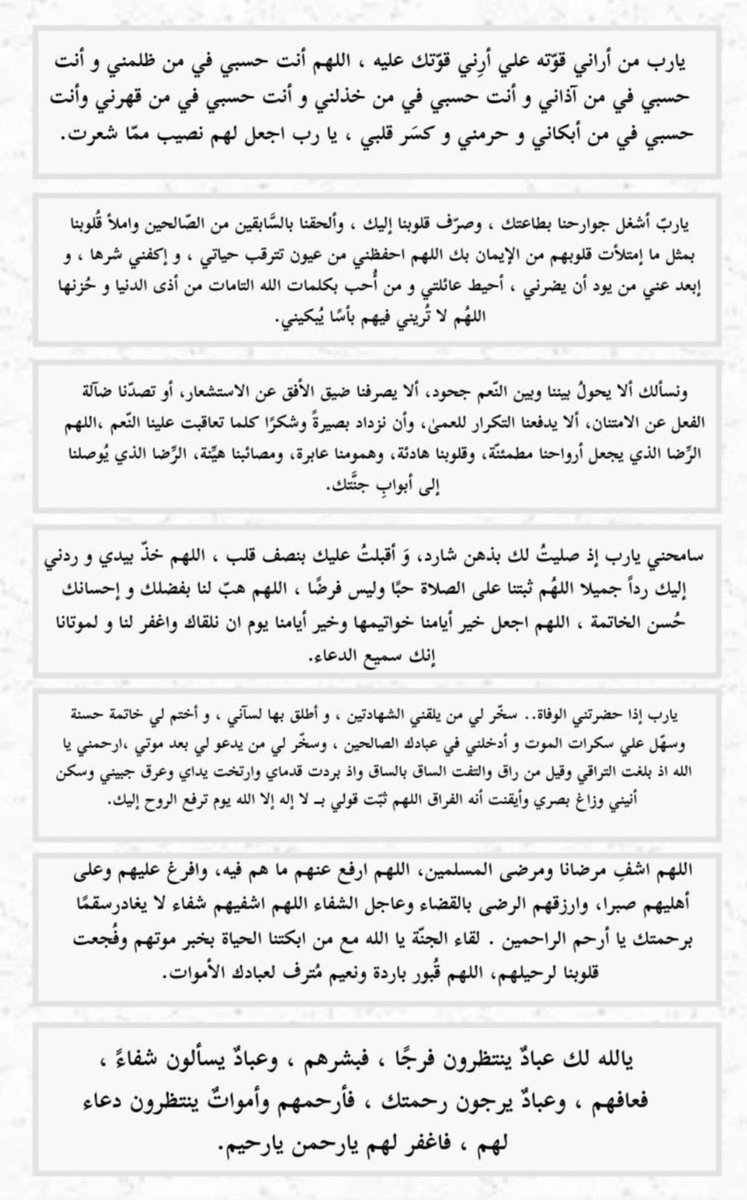 يارب من أراني قوّته علي أرِني قوّتك عليه ، اللهم أنت حسبي في من ظلمني و أنت
حسبي في من آذاني و أنت حسبي في من خذلني و أنت حسبي في من قهرني وأنت
حسبي في من أبكاني و حرمني و كسَر قلبي ، يا رب اجعل لهم نصيب ممّا شعرت.
ياربّ أشغل جوارحنا بطاعتك ، وصرّف قلوبنا إليك ، وألحقنا بالسَّابقين من الصّالحين واملأ قُلوبنا
بمثل ما إمتلأت قلوبهم من الإيمان بك اللهم احفظني من عيون تترقب حياتي ، و إكفني شرها ، و
إبعد عني من يود أن يضرني ، أحيط عائلتي و من أُحب بكلمات الله التامات من أذى الدنيا و حُزنها
اللهُم لا تُريني فيهم بأسًا يُبكيني.
ونسألك ألا يحولُ بيننا وبين النّعم جحود، ألا يصرفنا ضيق الأفق عن الاستشعار، أو تصدّنا ضآلة
الفعل عن الامتنان، ألا يدفعنا التكرار للعمىٰ، وأن نزداد بصيرةً وشكرًا كلما تعاقبت علينا النّعم ،اللهم
الرِّضا الذي يجعل أرواحنا مطمئنّة، وقلوبنا هادئة، وهمومنا عابرة، ومصائبنا هيِّنة، الرِّضا الذي يُوصلنا
إلى أبوابِ جنَّتك.
سامحني يارب إذ صليتُ لك بذهن شارد، وَ أقبلتُ عليك بنصف قلب ، اللهم خذّ بيدي و ردني
إليك رداً جميلا اللهُم ثبتنا على الصلاة حبًا وليس فرضًا ، اللهم هبّ لنا بفضلك و إحسانك
حُسن الخاتمة ، اللهم اجعل خير أيامنا خواتيمها وخير أيامنا يوم ان نلقاك واغفر لنا و لموتانا
إنك سميع الدعاء.
يارب إذا حضرتني الوفاة.. سخّر لي من يلقني الشهادتين ، و أطلق بها لسآني ، و أختم لي خاتمة حسنة
وسهّل علي سكرات الموت و أدخلني في عبادك الصالحين ، وسخّر لي من يدعو لي بعد موتي ،ارحمني يا
الله اذ بلغت التراقي وقيل من راق والتفت الساق بالساق واذ بردت قدماي وارتخت يداي وعرق جبيني وسكن
أنيني وزاغ بصري وأيقنت أنه الفراق اللهم ثبّت قولي بـ لا إله إلا الله يوم ترفع الروح إليك.
اللهم اشفِ مرضانا ومرضى المسلمين، اللهم ارفع عنهم ما هم فيه، وافرغ عليهم وعلى
أهليهم صبرا، وارزقهم الرضى بالقضاء وعاجل الشفاء اللهم اشفيهم شفاء لا يغادرسقمًا
برحمتك يا أرحم الراحمين . لقاء الجنّة يا الله مع من ابكتنا الحياة بخبر موتهم وفُجعت
قلوبنا لرحيلهم، اللهم قُبور باردة ونعيم مُترف لعبادك الأموات.
يالله لك عبادٌ ينتظرون فرجًا ، فبشرهم ، وعبادٌ يسألون شفاءً ،
فعافهم ، وعبادٌ يرجون رحمتك ، فأرحمهم وأمواتٌ ينتظرون دعاء
لهم ، فاغفر لهم يارحمن يارحيم.